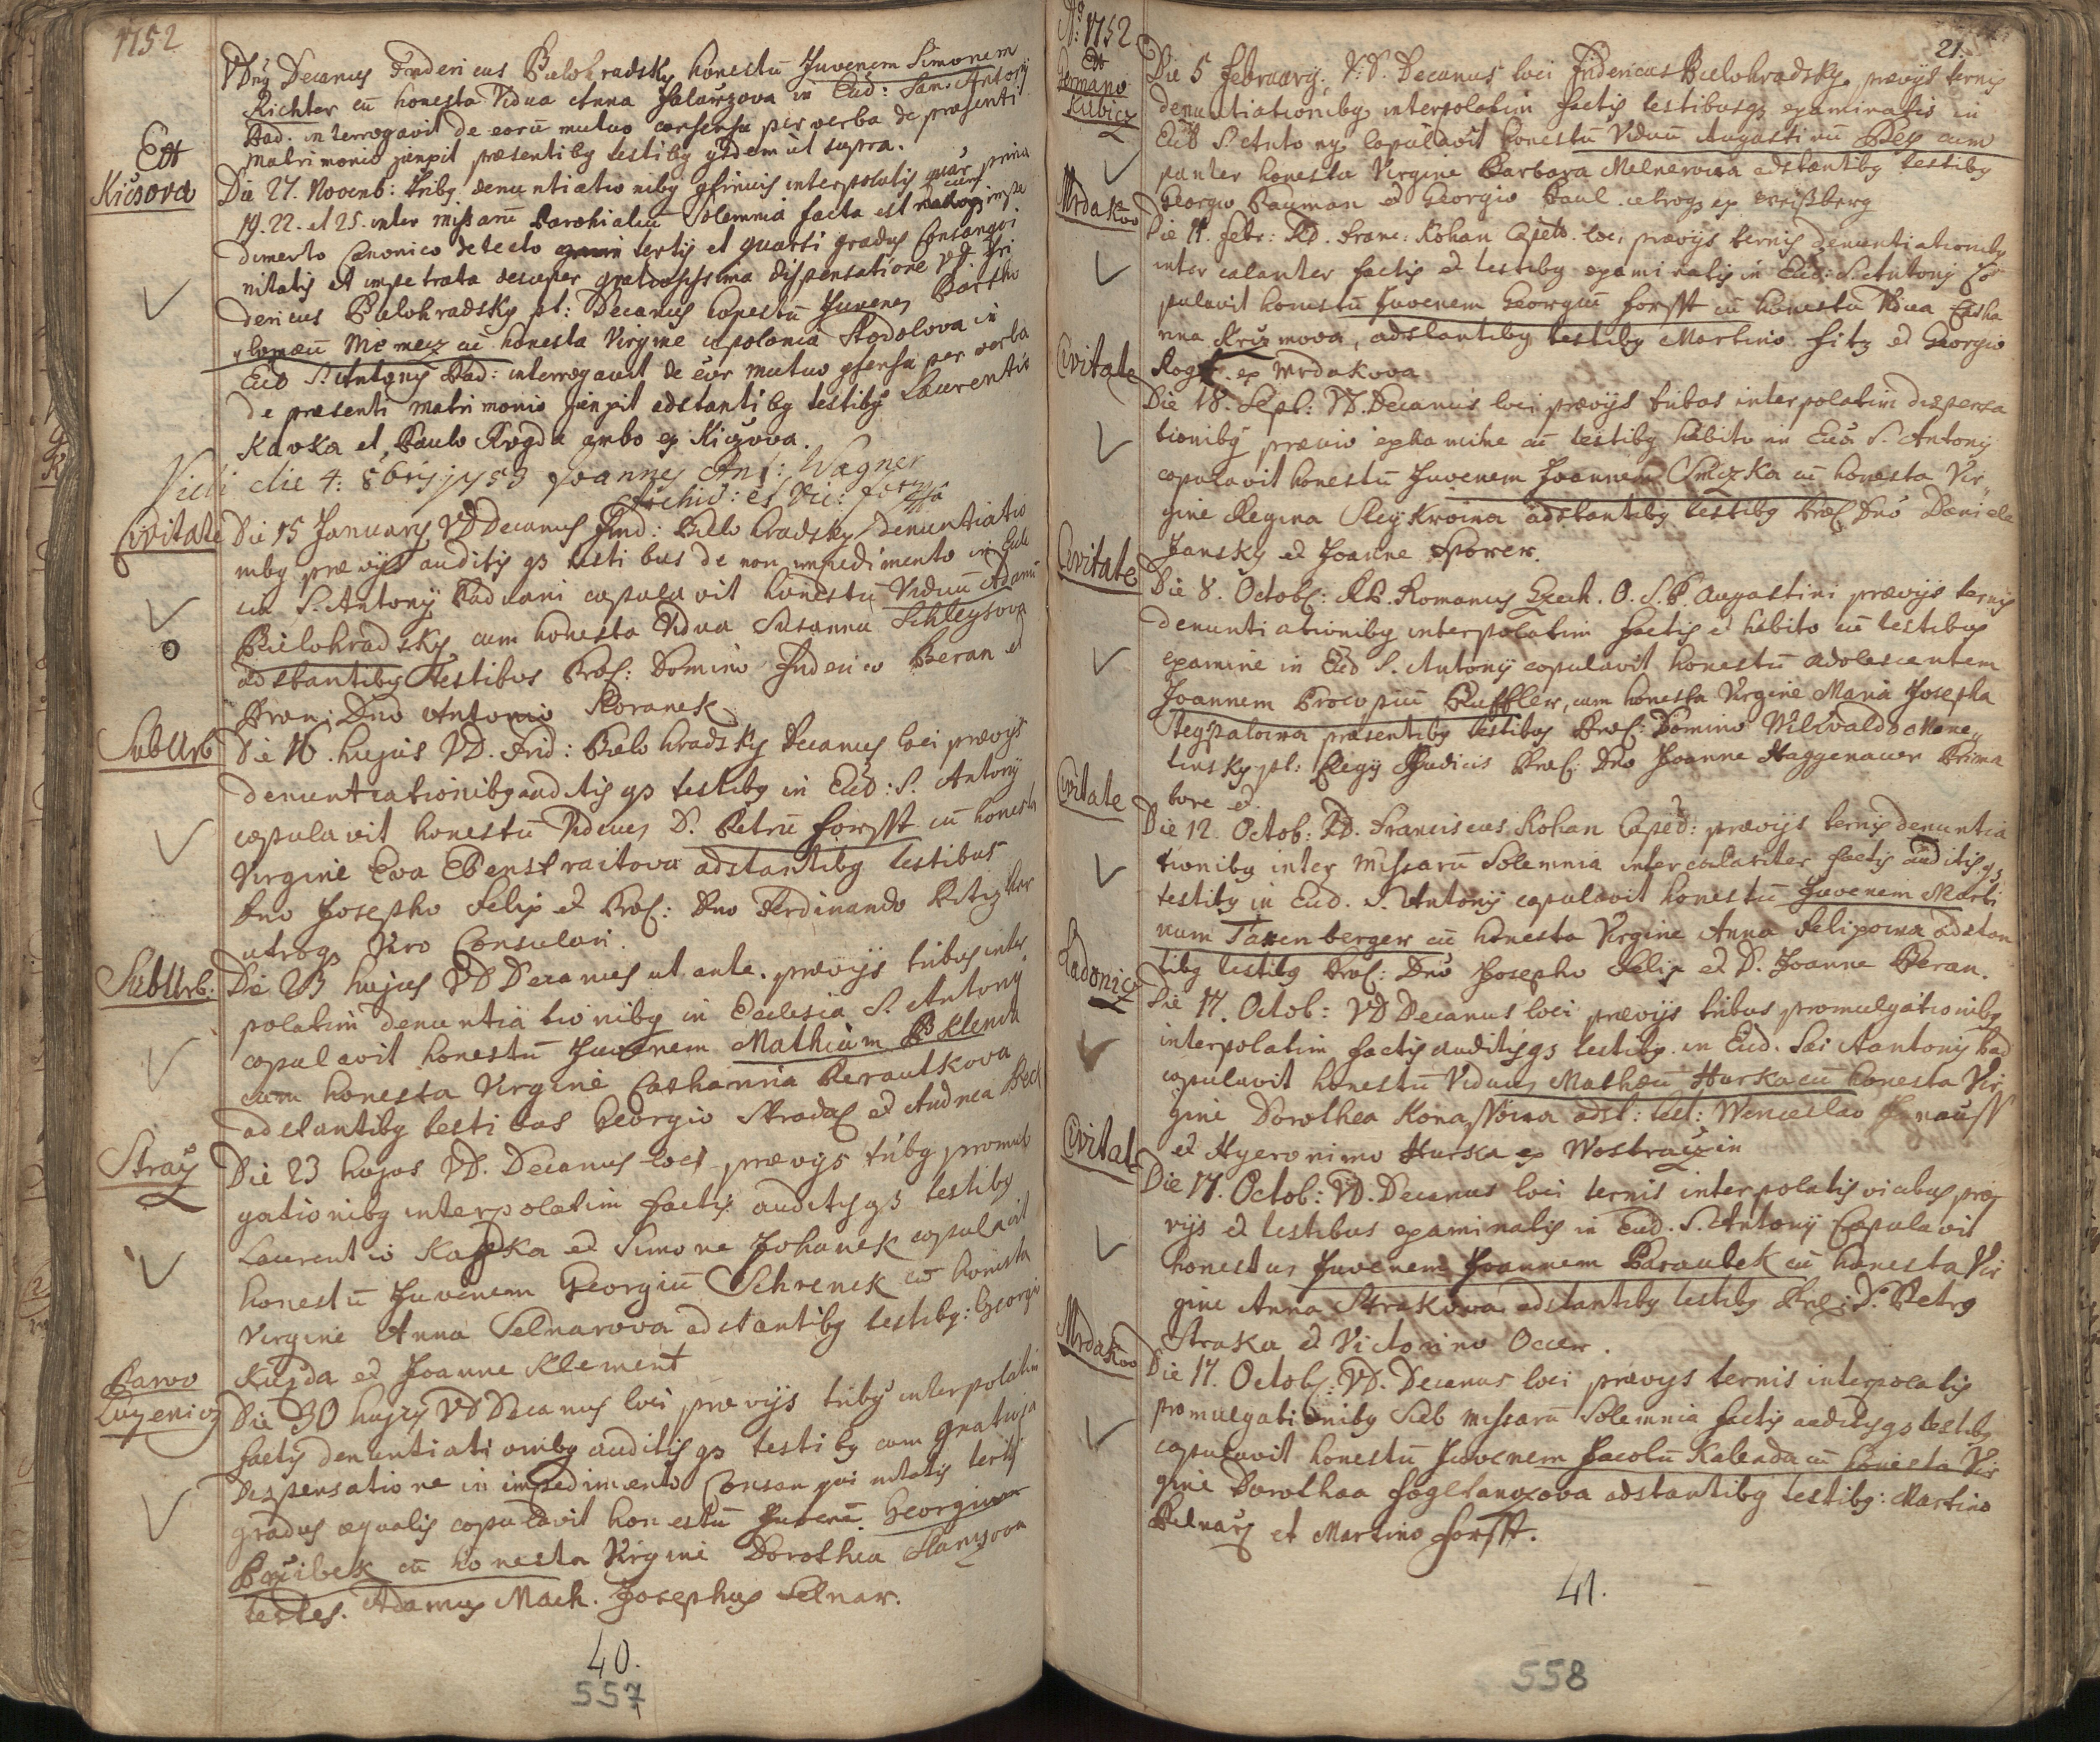 1752
VDng Decanus Fridericus Bielohradsky honestū Juvenem Simonem
Richter cū honesta Vidua Anna in Eccl: San: Antony
Pad. interrogavit de eorū mutuo consensu per verba de praesenti
matrimonio junxit praesentibg testibg ijsdem ut supra.
Ex
Kičzova
Die 27. Novemb: tribg denuntiationibg interpolatis
19. 22. et 25. inter missarū Parochialiū Solemnia facta est
dimento Canonico detecto tertij et quarti gradus Consangvi
nitatis et impetrata desuper gratiosissima dispensatione VD Fri
dericus Bielohradsky pt: Decanus honestū Juvenem Bartho
lomaeū Nemecz cū honesta Virgine Apolonia Stodolova in
Eccl S. Antony Pad: interrogavit de eor mutuo consensu per verba
de praesenti matrimonio junxit adstantibg testibg Laurentio
Kavka et Paulo Rogda ambo ex Kiczova.
Vidi die 4: 8bris 1753 Joannes Ant: Wagner
Archid: et Vic: for:
Civitate
Die 15 January VD Decanus Frid: Bielohradsky denuntiatio
nibg praevijs auditis qз testibus de non impedimento in Eccle
sia S. Antony Paduani copulavit honestū Viduū Adamū
Bielohradsky, cum honesta Vidua Susanna Schleysova
adstantibg testibus Prae: Domino Friderico Beran et
Praen: Dno Antonio Koranek
SubUrb
Die 16. hujus VD. Frid: Bielohradsky Decanus loci praevijs
denuntiationibg auditis qз testibg in Eccl: S. Antony
copulavit honestū Viduum D. Petrū Forsst cū honesta
Virgine Eva Ebenstraitova adstantibg testibus
Dno Josepho Felix et Prae: Dno Ferdinando
utroqз Viro Consulari.
SubUrb.
Die 23 hujus VD Decanus ut ante. praevijs tribus inter
polatim denuntiationibg in Ecclesia S. Antony
copulavit honestū Juvenem Mathiam Klema
cum honesta Virgine Catharina Berautkova
adstantibg testibus Georgio Stradal et Andrea
Straž
Die 23 hujus VD. Decanus loci praevijs tribg promul
gationibg interpolatim factis auditisqз testibg
Laurentio Kapka et Simone Johanek copulavit
honestū Juvenem Georgiū Schrenek cū honesta
Virgine Anna Selnarova adstantibg testibg: Georgio
Kuzda et Joanne Klement
Parvo
Luzenicz
Die 30 hujus VD Decanus loci praevijs tribg interpolatim
factis denuntiationibg auditis qз testibg cum gratiosa
Dispensatione in impedimento Consangvinitatis tertij
gradus aequalis copulavit honestū Juvene. Georgium
Pržibek cū honesta Virgine Dorothea
testes. Adamus Mach. Josephus Selnar.
40.
557
Aō: 1752.
21.
Ex
Germano
Kubicz
Die 5 February, V.D. Decanus loci Fridericus Bielohradsky praevijs ternis
denuntiationibg interpolatim factis testibusqз examinatis in
Eccl S. Antony copulavit honestū Viduū Augustinū Pley cum
pariter honesta Virgine Barbara Melnerova adstantibg testibg
Georgio Bauman et Georgio Paul utroqз ex
Mrdakov
Die 11. Febr: RD. Franc: Kohan Capel. loci praevijs ternis denuntiationibg
inter calanter factis et testibg examinatis in Eccl: S. Antony co
pulavit honestū Juvenem Georgiū Forsst cū honesta Vidua Catha
rina Krizmova, adstantibg testibg Martino Fitz et Georgio
Rogl. ex Mrdakova
Civitate
Die 18. Sept: VD. Decanus loci praevijs tribus interpolatim dispensa
tionibg praevio exhamine cū testibg habito in Eccl S. Antony
copulavit honestū Juvenem Joannem Smižka cū honesta Vir
gine Regina Reykrovna adstantibg testibg Prae Dno Daniele
Jansky et Joanne Sporer.
Civitate
Die 8. Octob: RP. Romanus Czech. O.S.P. Augustini praevijs ternis
denuntiationibg interpolatim factis et habito cū testibus
examine in Eccl S. Antony copulavit honestū adolescentem
Joannem Procopiū Ruffler, cum honesta Virgine Maria Josepha
praesentibg testibus Prae: Domino Wilibaldo
pt: Regij Judicis Prae: Dno Joanne Haggenauer Prima
tore et.
Civitate
Die 12. Octob: RD. Franciscus Kohan Capel: praevijs ternis denuntia
tionibg inter Missarū Solemnia intercalariter factis auditisqз
testibg in Eccl. S. Antony copulavit honestū Juvenem Marti
num Tannenberger cū honesta Virgine Anna Felipovna adstan
tibg testibg Prae: Dno Josepho Felix et D. Joanne Beran.
Ladonicz
Die 17. Octob: VD Decanus loci praevijs tribus promulgationibg
interpolatim factis auditisqз testibg in Eccl. Sti Aantony Pad
copulavit honestū Viduum Mathaeū Hurka cū honesta Vir
gine Dorothea Konassovna adst: test: Wenceslao
et Hyeronimo Hurka ex Wostraczin
Civitat
Die 17. Octob: VD. Decanus loci ternis interpolatis vicibus prae
vijs et testibus examinatis in Eccl. S. Antony Copulavit
honestum Juvenem Joannem Paroubek cū honesta Vir
gine Anna Strakova adstantibg testibg Prae: D. Petro
Straka et Victorino Occer.
Mrdakov
Die 17. Octob: VD. Decanus loci praevijs ternis interpolatis
promulgationibg Sub missarū Solemnia factis auditisqз testibg
copulavit honestū Juvenem Jacobū Kalenda cū honesta Vir
gine Dorothaa adstantibg testibg: Martino
et Martino Forsst.
41.
558